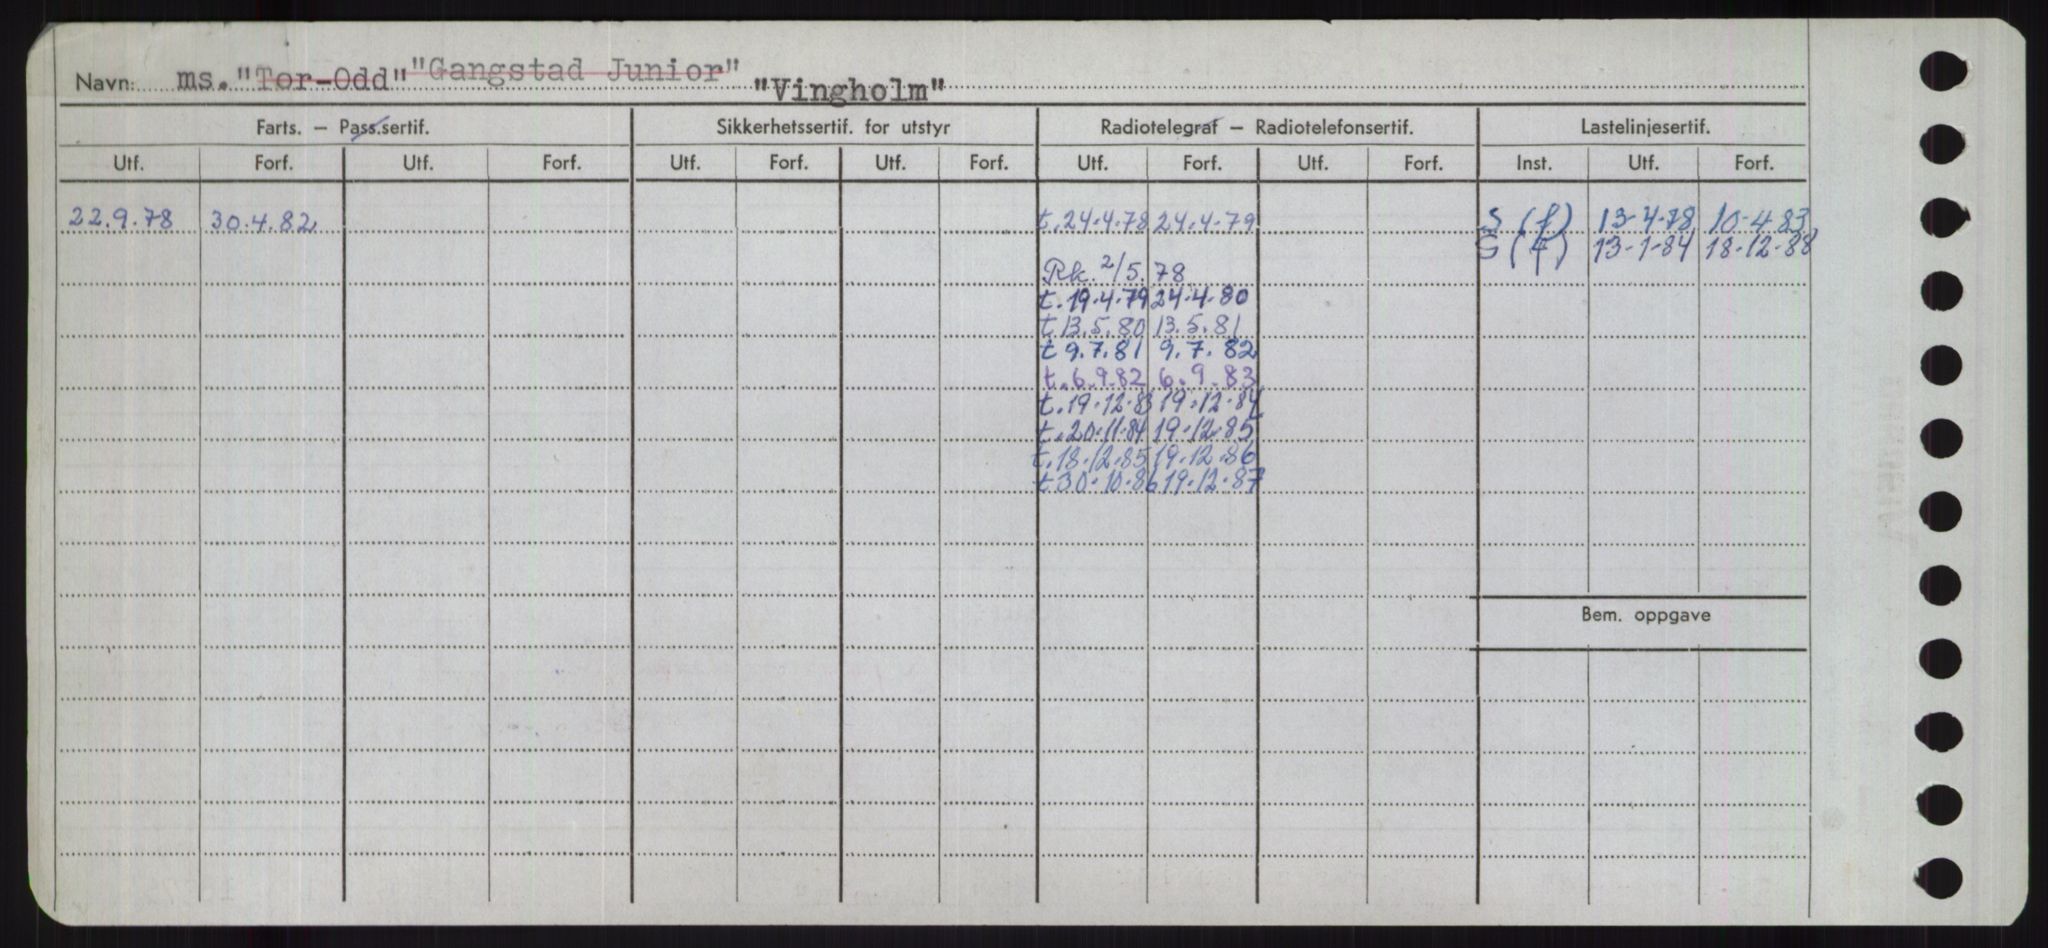 Navn: ms. "Tor-Odd" "Gangstad Junior" "Vingholm"
Farts. – Pass.sertif. Sikkerhetssertif. for utstyr Radiotelegraf – Radiotelefonsertif. Lastelinjesertif.
Utf. Forf. Utf. Forf. Utf. Forf. Utf. Forf. Utf. Forf. Utf. Forf. Inst. Utf. Forf.
22.9.78 30.4.82 t.24.4.78 24.4.79 S (f) 13-4-78 10-4-83
S (f) 13-1-84 18-12-88
Rk. 2/5.78
t.19.4.79 24.4.80
t.13.5.80 13.5.81
t 9.7.81 9.7.82
t.6.9.82 6.9.83
t.19.12.83 19.12.84
t.20.11.84 19.12.85
t.18.12.85 19.12.86
t30.10.86 19.12.87
Bem. oppgave